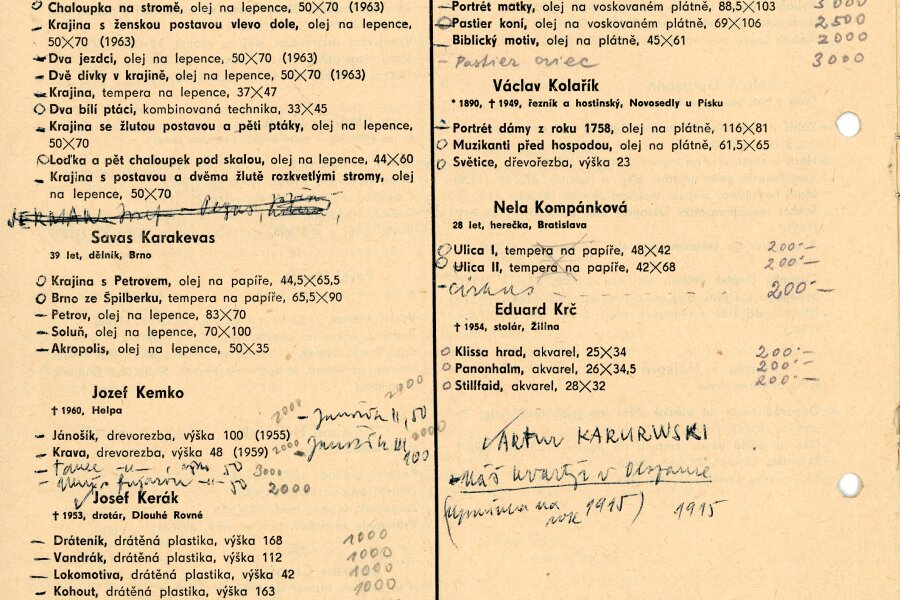 Chaloupka na stromě, olej na lepence, 50×70 (1963)
Krajina s ženskou postavou vlevo dole, olej na lepence,
50×70 (1963)
Dva jezdci, olej na lepence, 50×70 (1963)
Dvě dívky v krajině, olej na lepence, 50×70 (1963)
Krajina, tempera na lepence, 37×47
Dva bílí ptáci, kombinovaná technika, 33×45
Krajina se žlutou postavou a pěti ptáky, olej na lepence,
50×70
Loďka a pět chaloupek pod skalou, olej na lepence, 44×60
Krajina s postavou a dvěma žlutě rozkvetlými stromy, olej
na lepence, 50×70
JERMAN Josef – Pegas,
Savas Karakevas
39 let, dělník, Brno
Krajina s Petrovem, olej na papíře, 44,5×65,5
Brno ze Špilberku, tempera na papíře, 65,5×90
Petrov, olej na lepence, 83×70
Soluň, olej na lepence, 70×100
Akropolis, olej na lepence, 50×35
Jozef Kemko
† 1960, Helpa
2000
2000 – Jánošík II, 50
Jánošík, drevorezba, výška 100 (1955)
2000
Krava, drevorezba, výška 48 (1959) 2000 – Jánošík III
100
– tanec –„– 50 3000
50 2000
Josef Kerák
† 1953, drotár, Dlouhé Rovné
Dráteník, drátěná plastika, výška 168 1000
Vandrák, drátěná plastika, výška 112 1000
Lokomotiva, drátěná plastika, výška 42 1000
Kohout, drátěná plastika, výška 163 1000
Portrét matky, olej na voskovaném plátně, 88,5×103 5000
Pastier koní, olej na voskovaném plátně, 69×106 2500
Biblický motiv, olej na plátně, 45×61 2000
– Pastier oviec 3000
Václav Kolařík
* 1890, † 1949, řezník a hostinský, Novosedly u Písku
Portrét dámy z roku 1758, olej na plátně, 116×81
Muzikanti před hospodou, olej na plátně, 61,5×65
Světice, dřevořezba, výška 23
Nela Kompánková
28 let, herečka, Bratislava
Ulica I, tempera na papíře, 48×42 200·–
Ulica II, tempera na papíře, 42×68 200·–
– cirkus – 200·–
Eduard Krč
† 1954, stolár, Žilina
Klissa hrad, akvarel, 25×34 200·–
Panonhalm, akvarel, 26×34,5 200·–
Stillfaid, akvarel, 28×32 200·–
Artur KARURWSKI
– Náš kvartýr v Olszanie
na
rok 1915) 1915